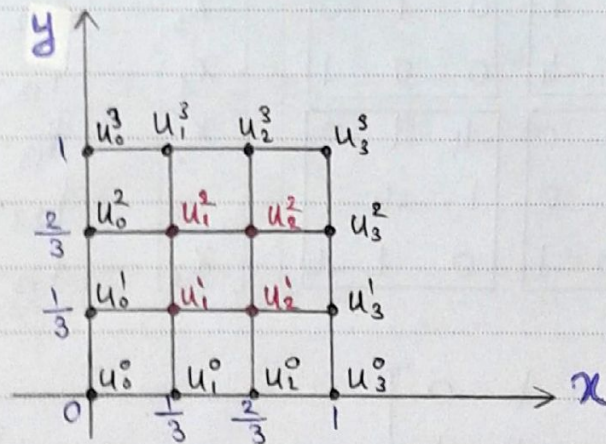 y
u₀³ u₁³ u₂³ u₃³
1
2/3 u₀² u₁² u₂² u₃²
1/3 u₀¹ u₁¹ u₂¹ u₃¹
u₀⁰ u₁⁰ u₂⁰ u₃⁰
0 1/3 2/3 1 x